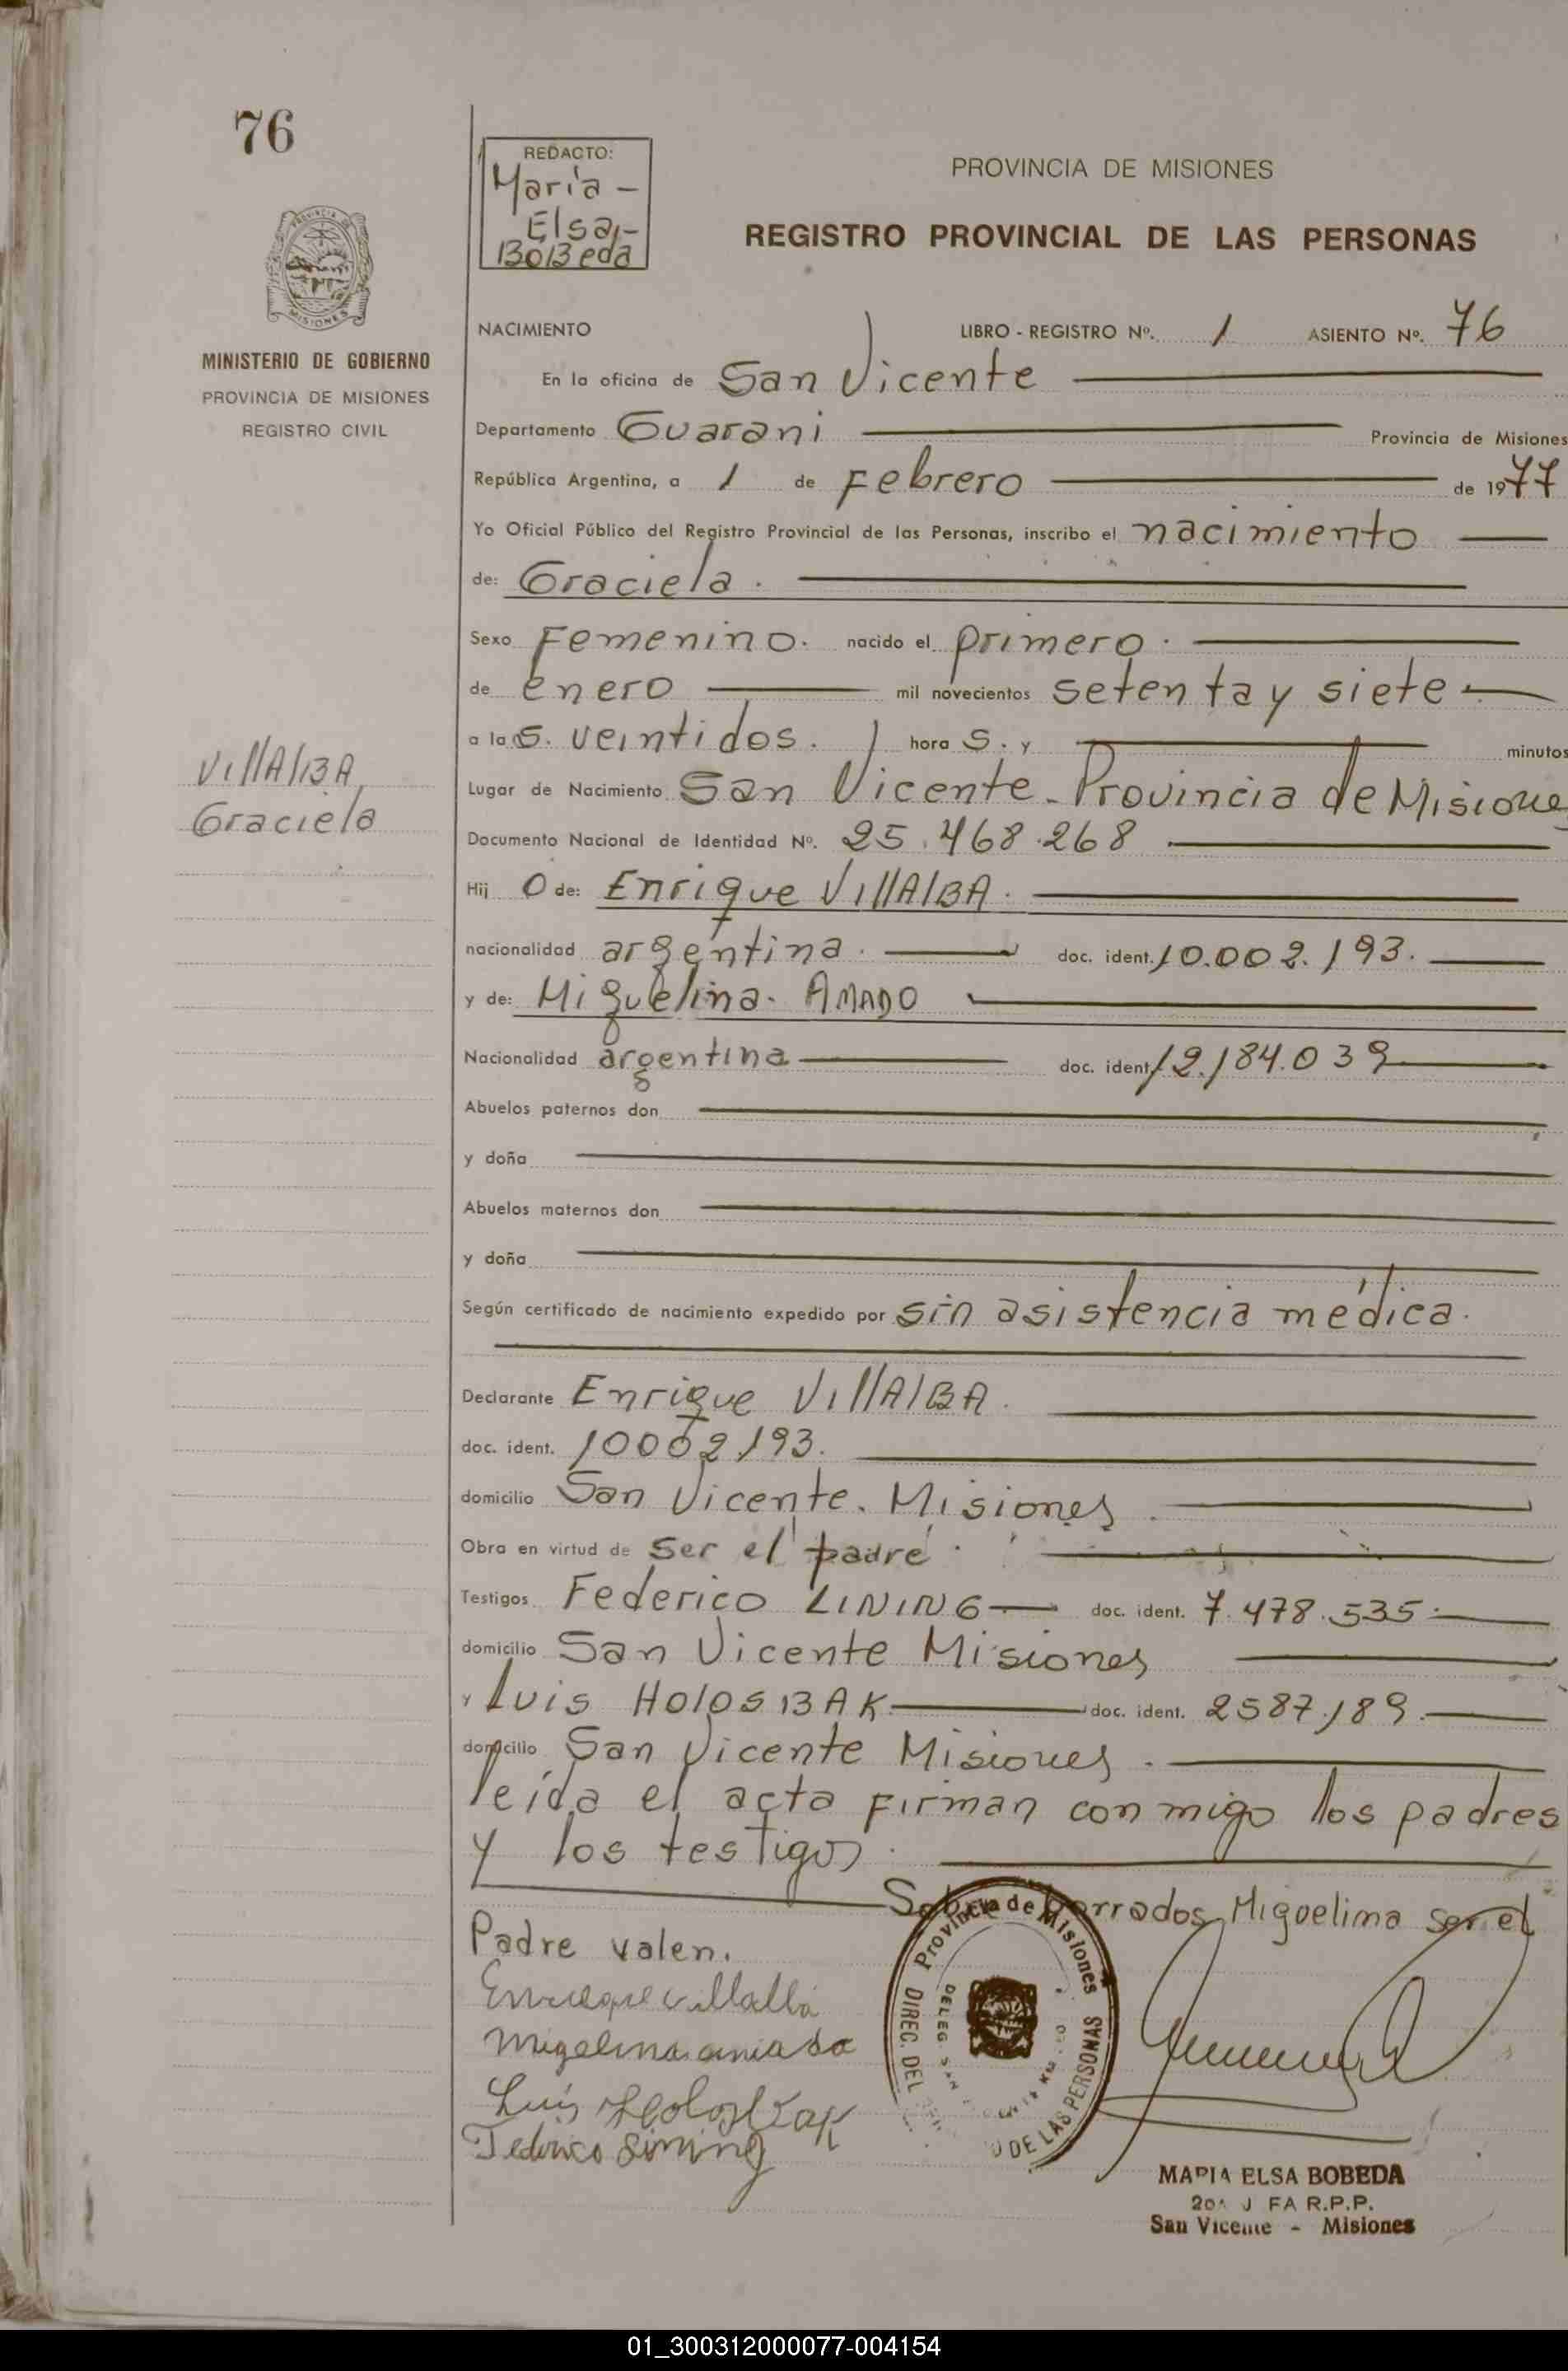 76
REDACTO:
Maria -
Elsa -
BoBeda
PROVINCIA DE MISIONES
REGISTRO PROVINCIAL DE LAS PERSONAS
PROVINCIA DE
MISIONES
MINISTERIO DE GOBIERNO
PROVINCIA DE MISIONES
REGISTRO CIVIL
NACIMIENTO LIBRO - REGISTRO Nº. 1 ASIENTO Nº. 76
En la oficina de San Vicente
Departamento Guarani Provincia de Misiones
República Argentina, a 1 de Febrero de 1977
Yo Oficial Público del Registro Provincial de las Personas, inscribo el nacimiento
de: Graciela.
Sexo Femenino. nacido el primero.
de enero mil novecientos setenta y siete
a las. veintidos. horas. y minutos
VillAlBA
Graciela
Lugar de Nacimiento San Vicente - Provincia de Misiones
Documento Nacional de Identidad Nº. 25.468.268
Hij O de: Enrique VillAlBA.
nacionalidad argentina. doc. ident. 10.002.193.
y de: Miguelina. AMADO
Nacionalidad argentina doc. ident. 12.184.039
Abuelos paternos don
y doña
Abuelos maternos don
y doña
Según certificado de nacimiento expedido por sin asistencia médica.
Declarante Enrique VillAlBA.
doc. ident. 10002193.
domicilio San Vicente. Misiones.
Obra en virtud de ser el padre.
Testigos Federico LINING doc. ident. 7.478.535.
domicilio San Vicente Misiones
y Luis HolosBAK doc. ident. 2587.189.
domicilio San Vicente Misiones.
leída el acta firman conmigo los padres
y los testigos.
Sobre borrados Miguelima ser el
Padre valen.
Enrique villalba
Migelina amado
Luis Holosbak
Federico Lining
Provincia de Misiones
DIREC. DEL DE LAS PERSONAS
DELEG. SAN
MARIA ELSA BOBEDA
R.P.P.
San Vicente - Misiones
01_300312000077-004154